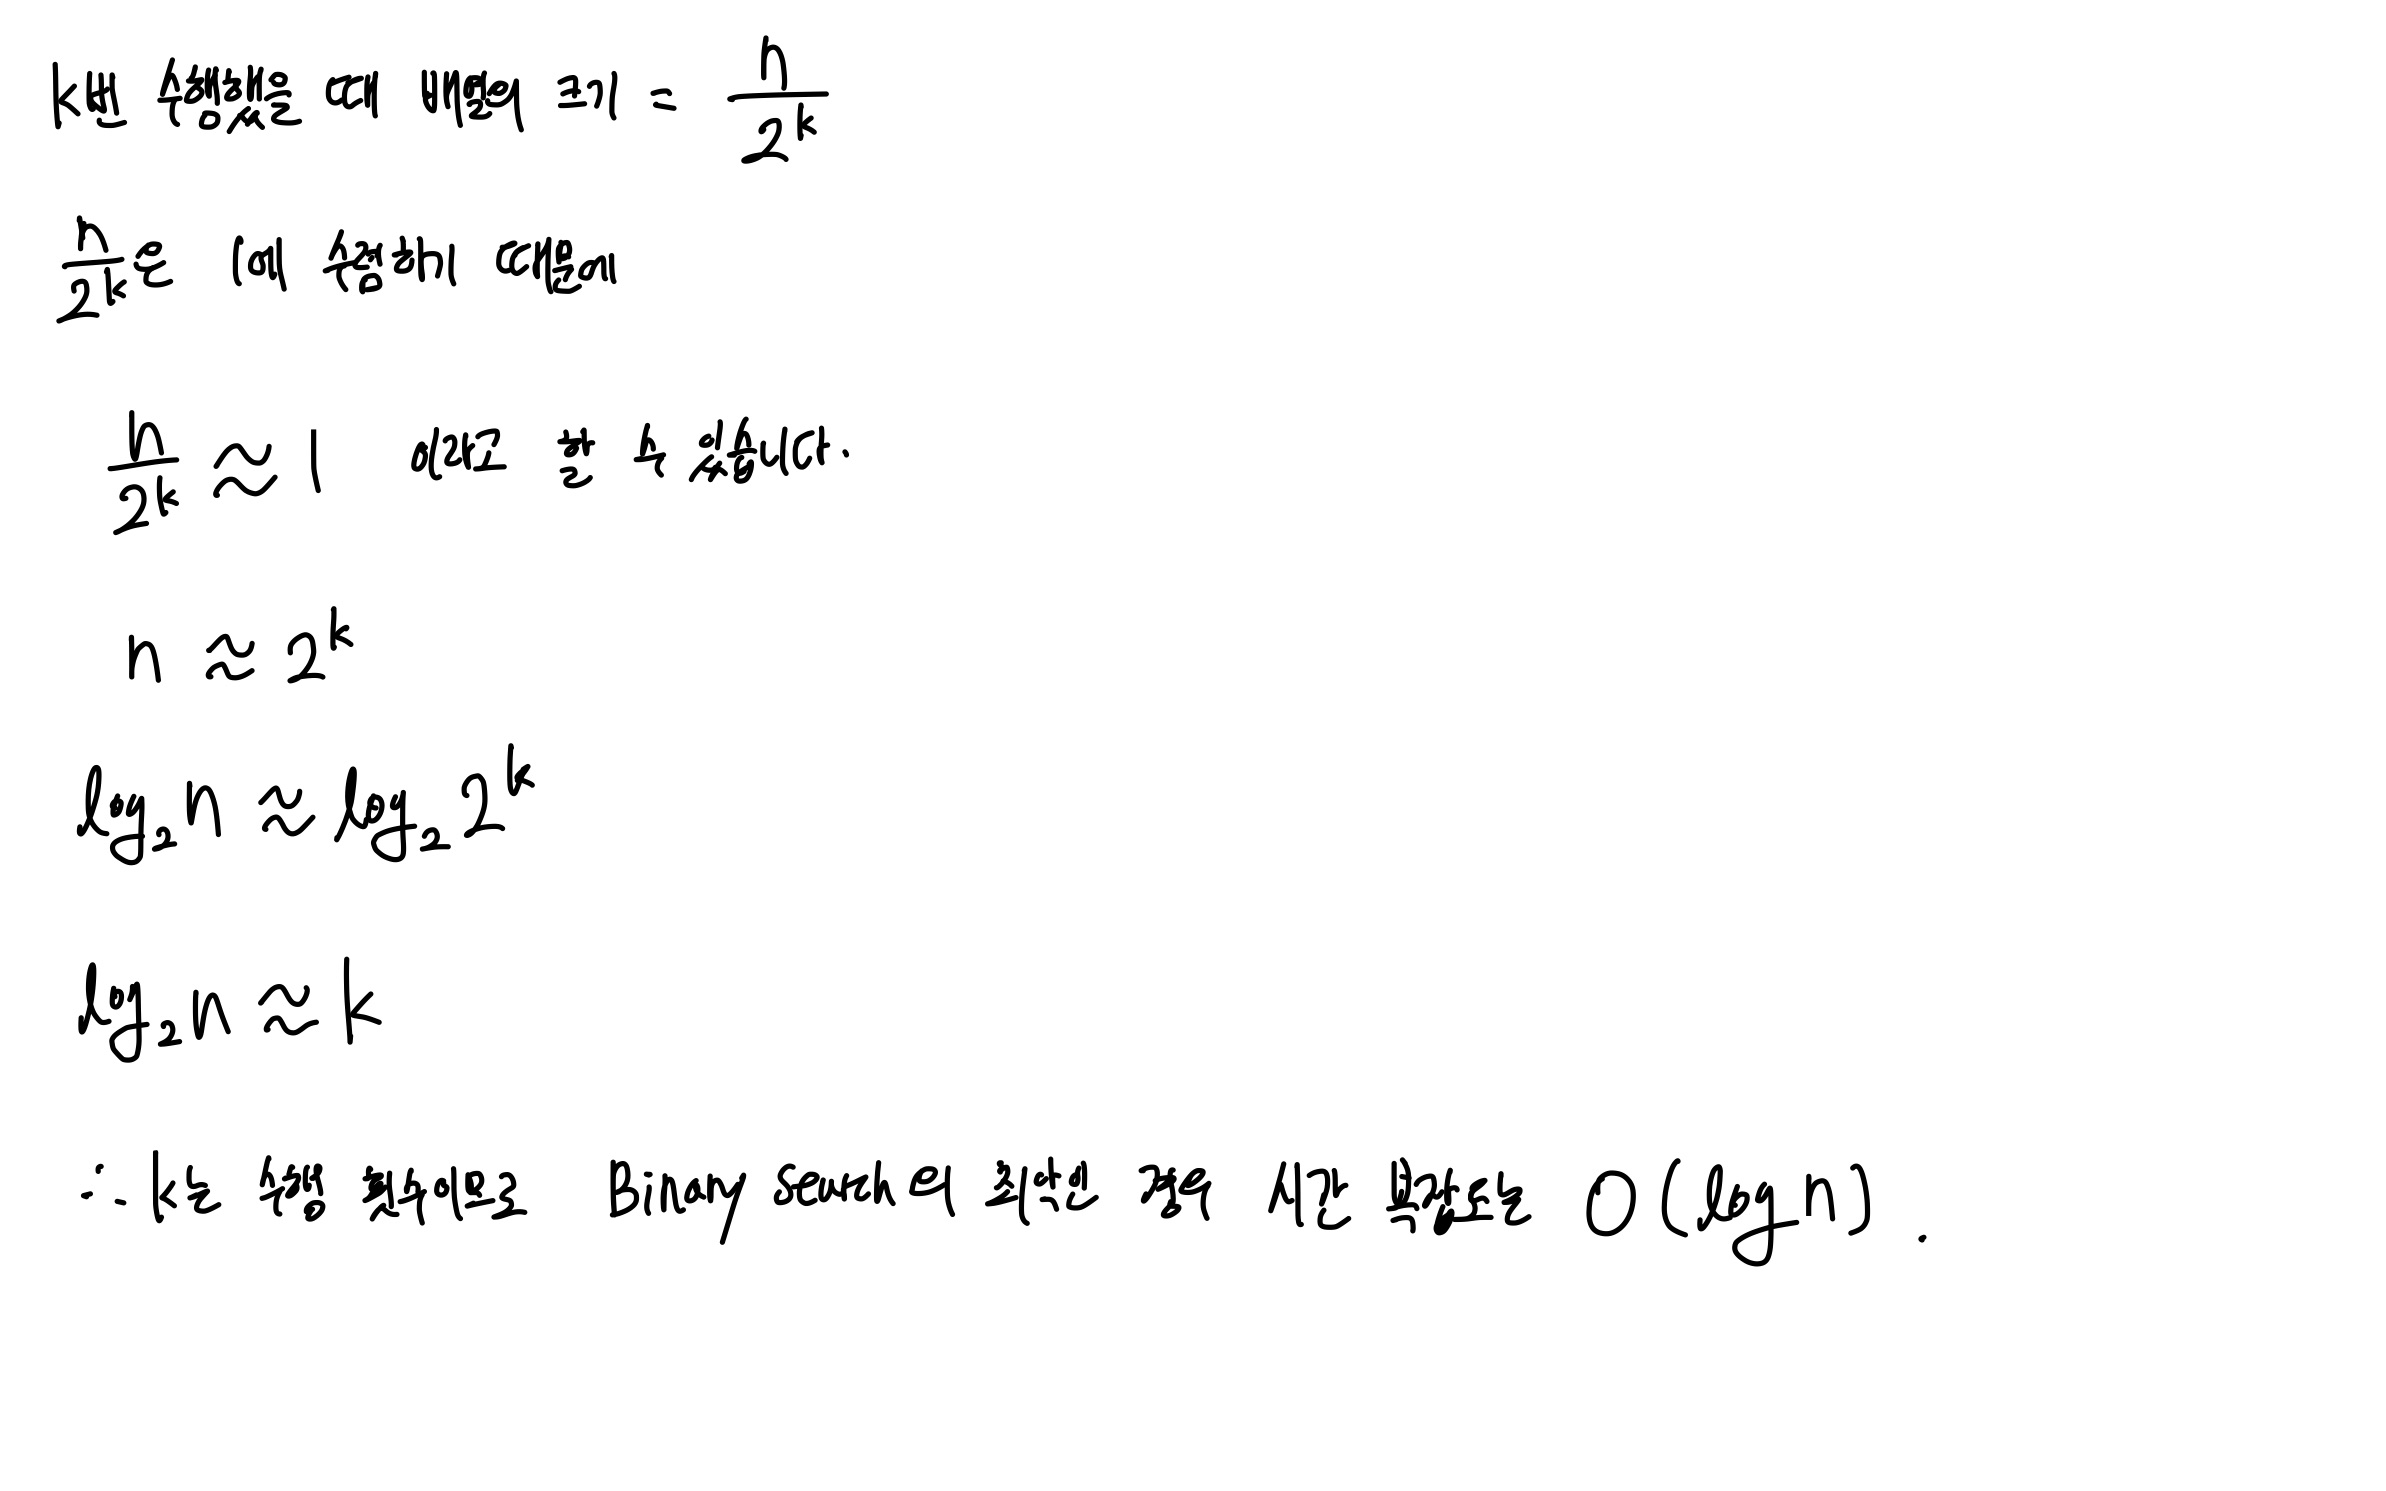 k번 수행했을 때 배열의 크기 = n/2^k
n/2^k은 1에 수렴하기 때문에
n/2^k ≈ 1 이라고 할 수 있습니다.
n ≈ 2^k
log₂n ≈ log₂2^k
log₂n ≈ k
∴ k는 수행 횟수이므로 Binary search의 최악의 경우 시간 복잡도는 O(log n).